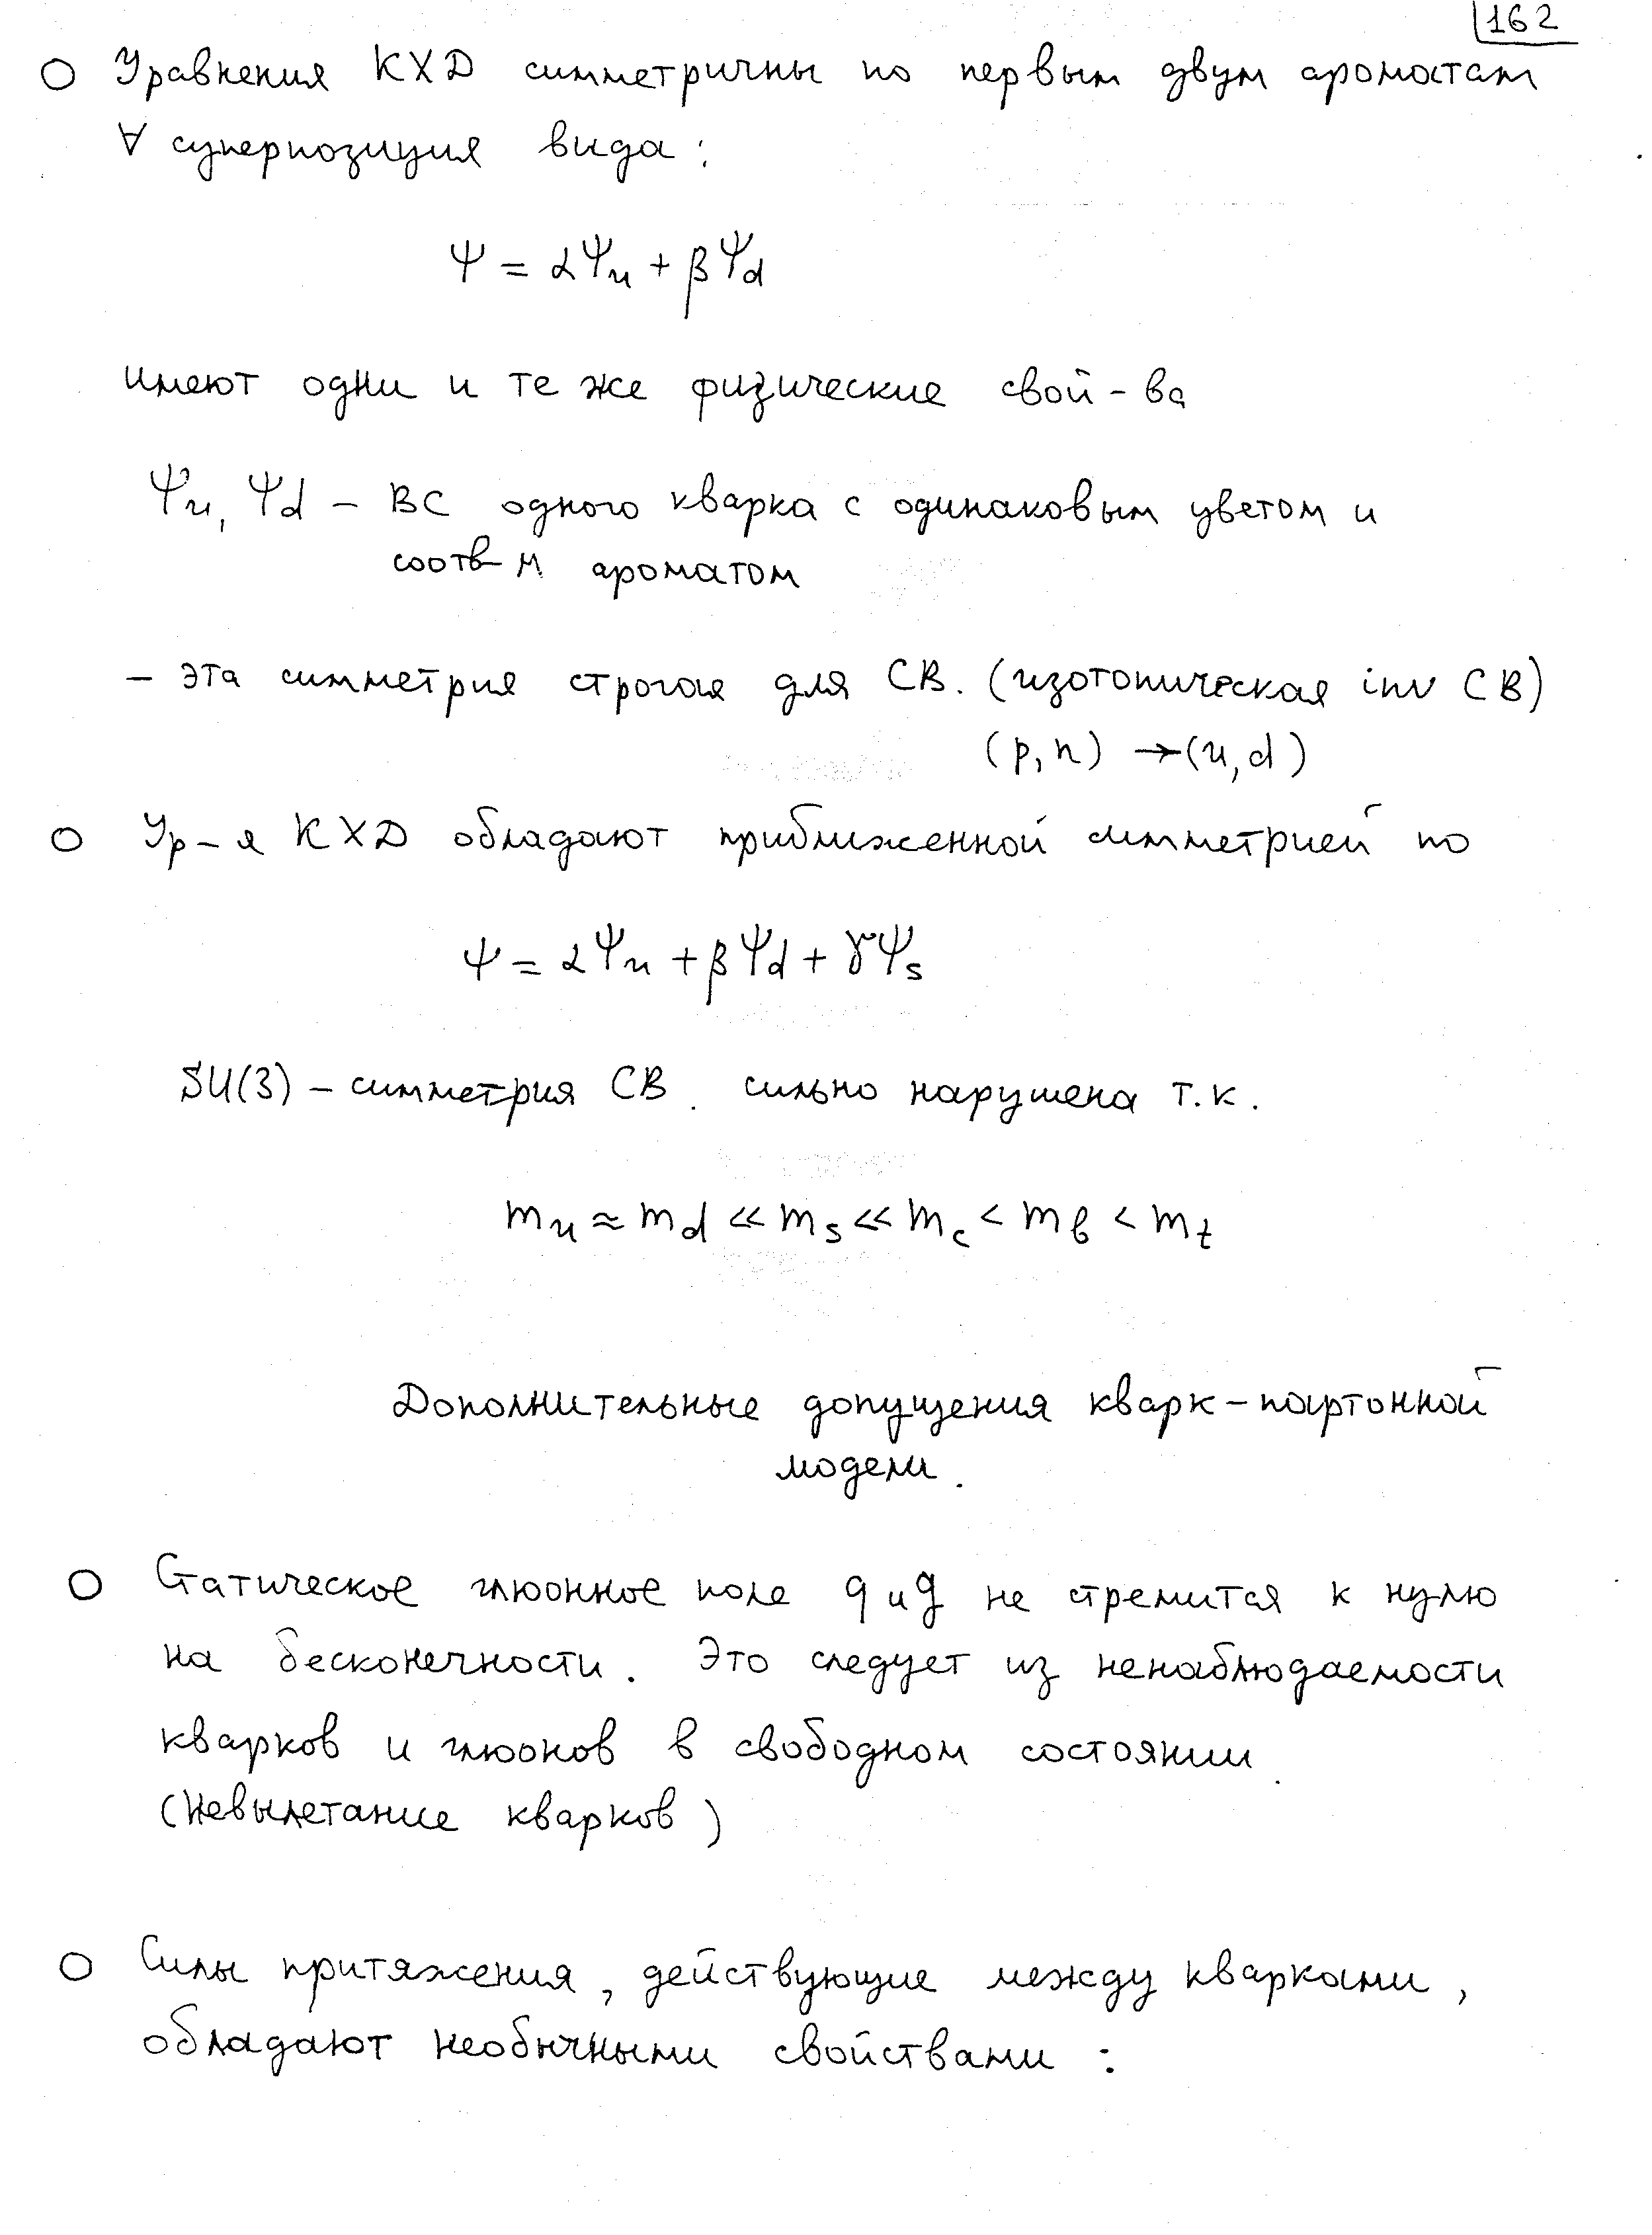 162
○ Уравнения КХД симметричны по первым двум ароматам
∀ суперпозиция вида:
Ψ = αΨu + βΨd
имеют одни и те же физические свой-ва
Ψu, Ψd – ВС одного кварка с одинаковым цветом и
соотв-м ароматом
– эта симметрия строгая для СВ. (изотопическая inv СВ)
(p, n) → (u, d)
○ Ур-я КХД обладают приближенной симметрией по
Ψ = αΨu + βΨd + γΨs
SU(3) – симметрия СВ. сильно нарушена т.к.
mu ≈ md ≪ ms ≪ mc < mb < mt
Дополнительные допущения кварк-партонной
модели.
○ Статическое глюонное поле q и g не стремится к нулю
на бесконечности. Это следует из ненаблюдаемости
кварков и глюонов в свободном состоянии.
(Невылетание кварков)
○ Силы притяжения, действующие между кварками,
обладают необычными свойствами: